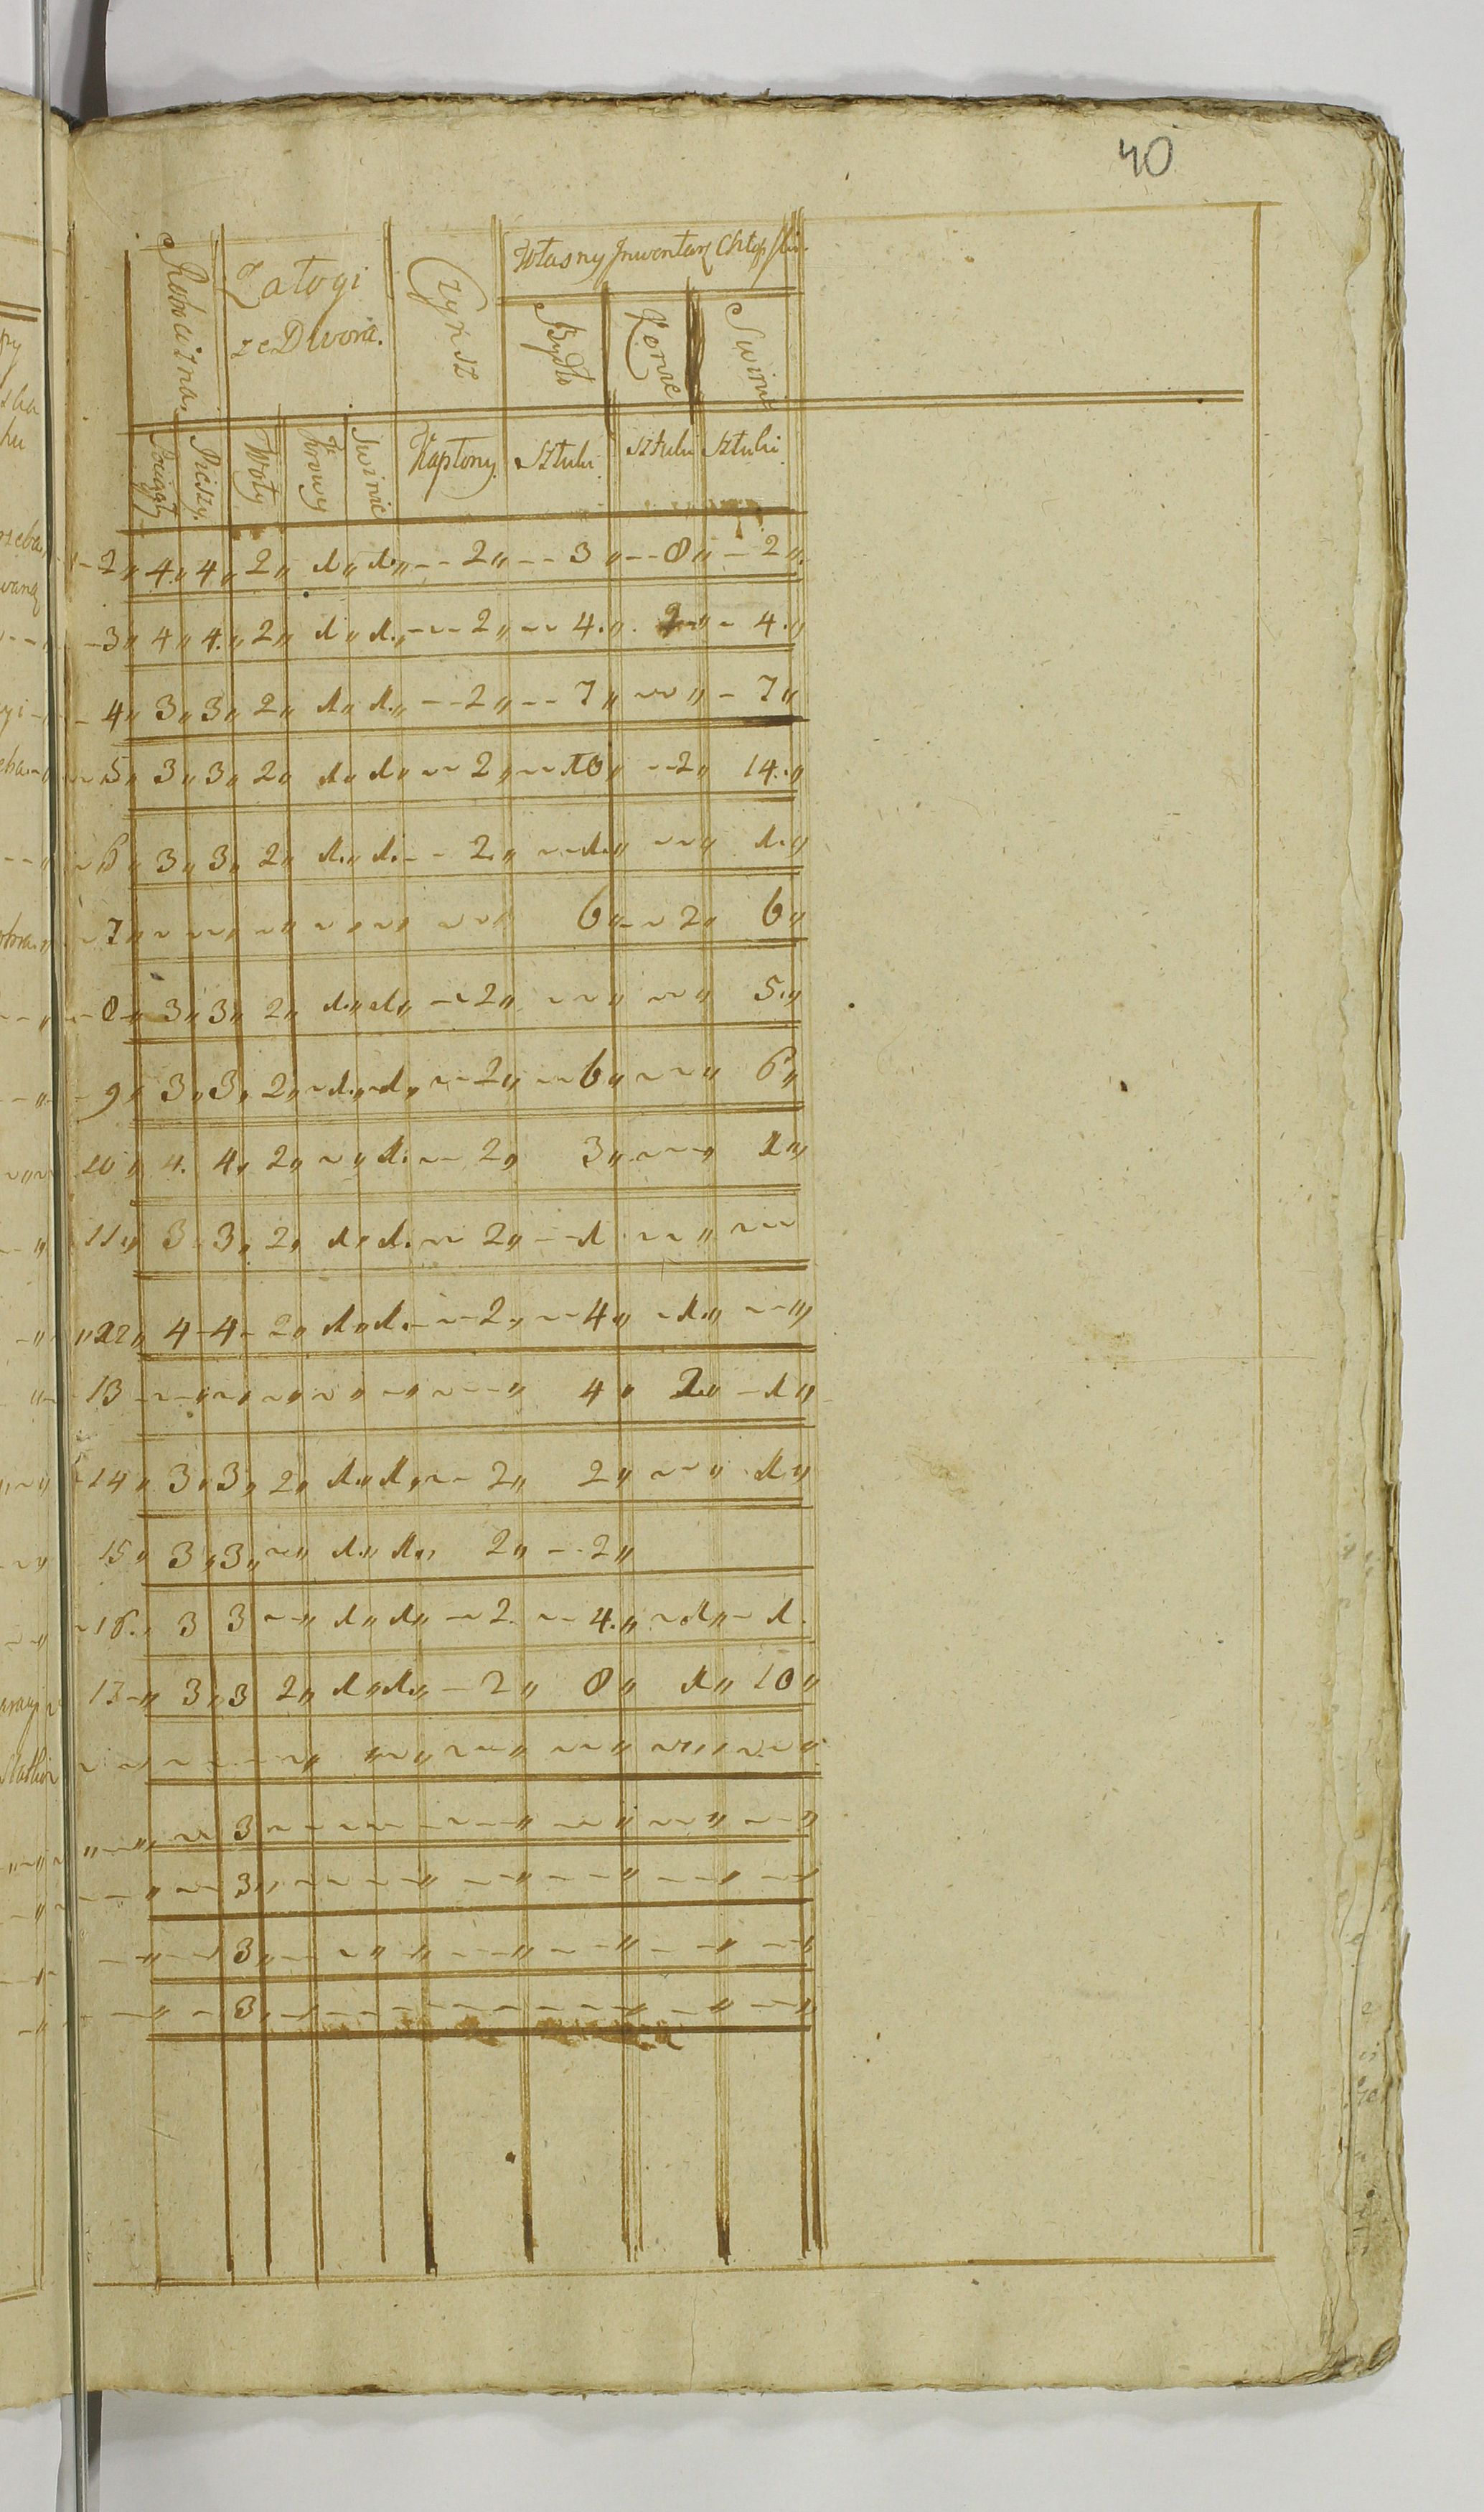 40
Robocizna
Załogi
ze Dwora.
Czynsz
Własny Jnwentarz Chłopski.
Bydło
Konie
Swinie
Pociągły
Pieszy.
Woły
Krowy
Swinie
Kapłony
Sztuki
Sztuki
Sztuki
2„ 4„ 4„ 2„ 1„ 1„ -- 2„ -- 3„ -- 8„ - 2„
3„ 4„ 4„ 2„ 1„ 1„ -- 2„ -- 4.„ 2„ - 4.„
4„ 3„ 3„ 2„ 1„ 1„ -- 2„ -- 7„ --„ - 7„
5„ 3„ 3„ 2„ 1„ 1„ -- 2„ -- 10„ -- 2„ 14.„
6„ 3„ 3„ 2„ 1.„ 1.-- 2.„ -- 1.„ --„ 1.„
7„ - --„ -„ -„ -„ --„ 6„ -- 2„ 6„
8-„ 3„ 3„ 2„ 1.„ 1„ -- 2„ --„ --„ 5.„
9„ 3„ 3„ 2„ - 1.„ - 1„ -- 2„ -- 6„ --„ 6„
10„ 4. 4„ 2„ -„ 1. -- 2„ 3„ ---„ 1„
11„ 3„ 3„ 2„ 1„ 1. -- 2„ -- 1 --„ --
„12„ 4 - 4 - 2„ 1„ 1. -- 2.„ -- 4„ - 1.„ --„
13 - --„ -„ -„ -„ -„ ---„ 4„ 2.„ - 1„
14„ 3„ 3„ 2„ 1.„ 1„ -- 2„ 2„ --„ 1„
15„ 3„ 3„ -„ 1.„ 1.„ 2„ -- 2„
16.„ 3 3 --„ 1„ 1„ -- 2. -- 4.„ - 1„ - 1.
17-„ 3„ 3 2„ 1„ 1.„ - 2„ 8„ 1„ 10„
- -„ - - - -„ „-„ ---„ --„ --„ --„
„--„ -- 3 - - - - - ---„ --„ --„ --„
---„ -- 3„ - - - -„ --„ ---„ --„ --
--„ -- 3„ -- -„ „ ---„ ---„ --„ --„
--„ - 3„ -- - - - - - - - -„ -„ --„